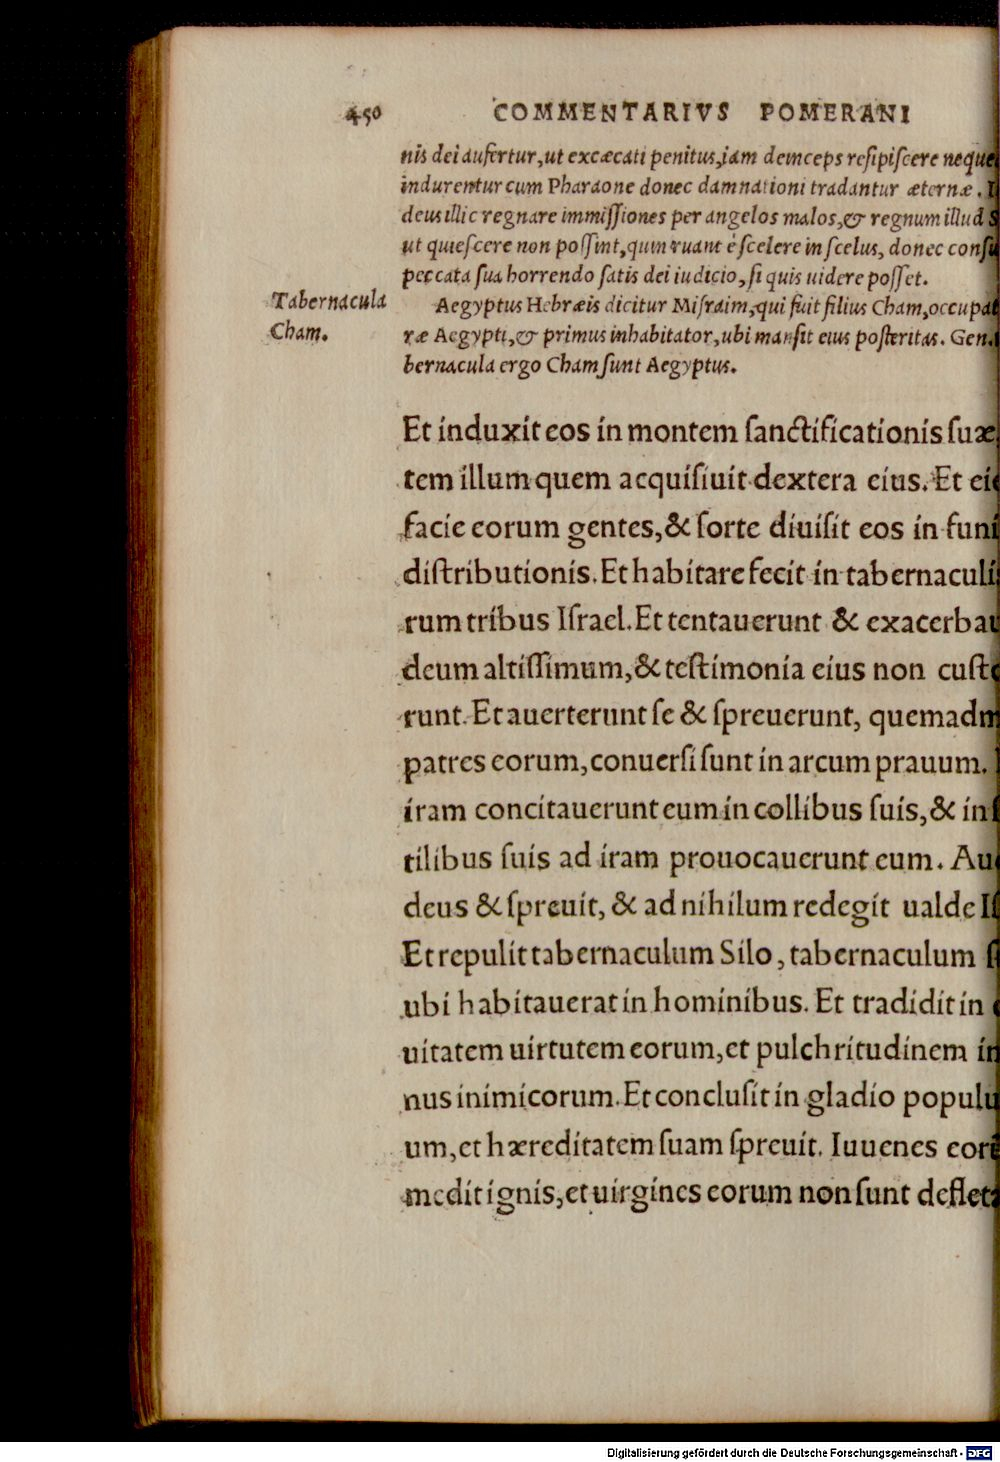 450 COMMENTARIVS POMERANI
nis dei aufertur, ut excæcati penitus, iam deinceps resipiscere neque
indurentur cum Pharaone donec damnationi tradantur æternæ.
deus illic regnare immissiones per angelos malos, & regnum illud S
ut quiescere non possint, quum ruant è scelere in scelus, donec consu
peccata sua horrendo satis dei iudicio, si quis uidere posset.
Tabernacula
Cham.
Aegyptus Hebræis dicitur Misraim, qui fuit filius Cham, occupat
ræ Aegypti, & primus inhabitator, ubi mansit eius posteritas. Gen.
bernacula ergo Cham sunt Aegyptus.
Et induxit eos in montem sanctificationis suæ,
tem illum quem acquisiuit dextera eius. Et eie
facie eorum gentes, & sorte diuisit eos in funi
distributionis. Et habitare fecit in tabernaculi
rum tribus Israel. Et tentauerunt & exacerbau
deum altissimum, & testimonia eius non custo
runt. Et auerterunt se & spreuerunt, quemadm
patres eorum, conuersi sunt in arcum prauum.
iram concitauerunt eum in collibus suis, & in s
tilibus suis ad iram prouocauerunt eum. Au
deus & spreuit, & ad nihilum redegit ualde Is
Et repulit tabernaculum Silo, tabernaculum s
ubi habitauerat in hominibus. Et tradidit in c
uitatem uirtutem eorum, et pulchritudinem in
nus inimicorum. Et conclusit in gladio populu
um, et hæreditatem suam spreuit. Iuuenes eorū
medit ignis, et uirgines eorum non sunt deflet
Digitalisierung gefördert durch die Deutsche Forschungsgemeinschaft - DFG